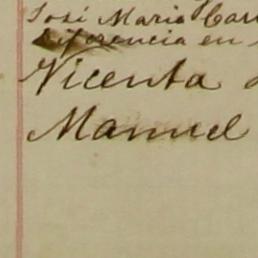 José Maria Car
diferencia en
Vicenta
Manuel